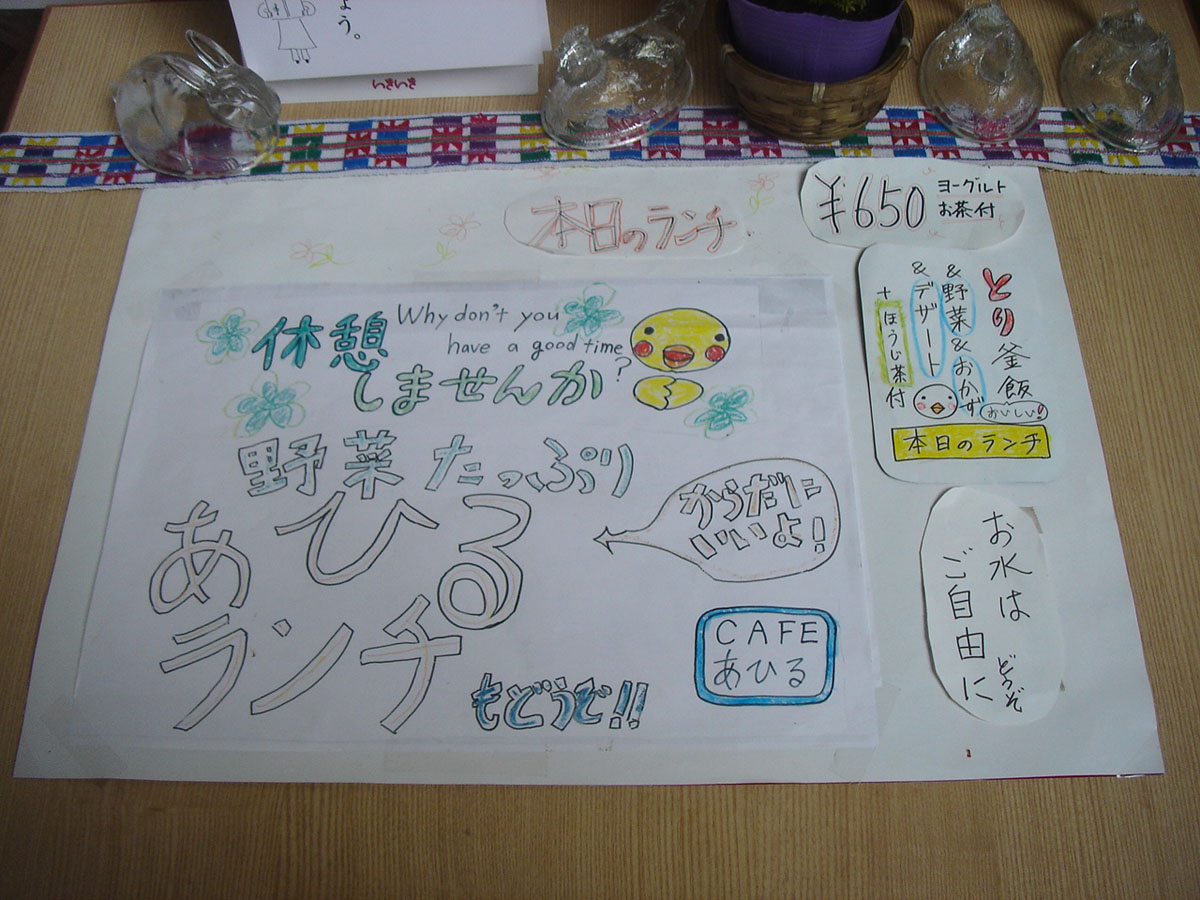 ょう。
いきいき
本日のランチ
¥650
ヨーグルト
お茶付
休憩
Why don't you
have a good time?
しませんか
野菜たっぷり
あひる
ランチ
もどうぞ!!
からだに
いいよ!
CAFE
あひる
とり釜飯
おいしい!
&野菜&おかず
&デザート
+ほうじ茶付
本日のランチ
お水は
ご自由に
どうぞ